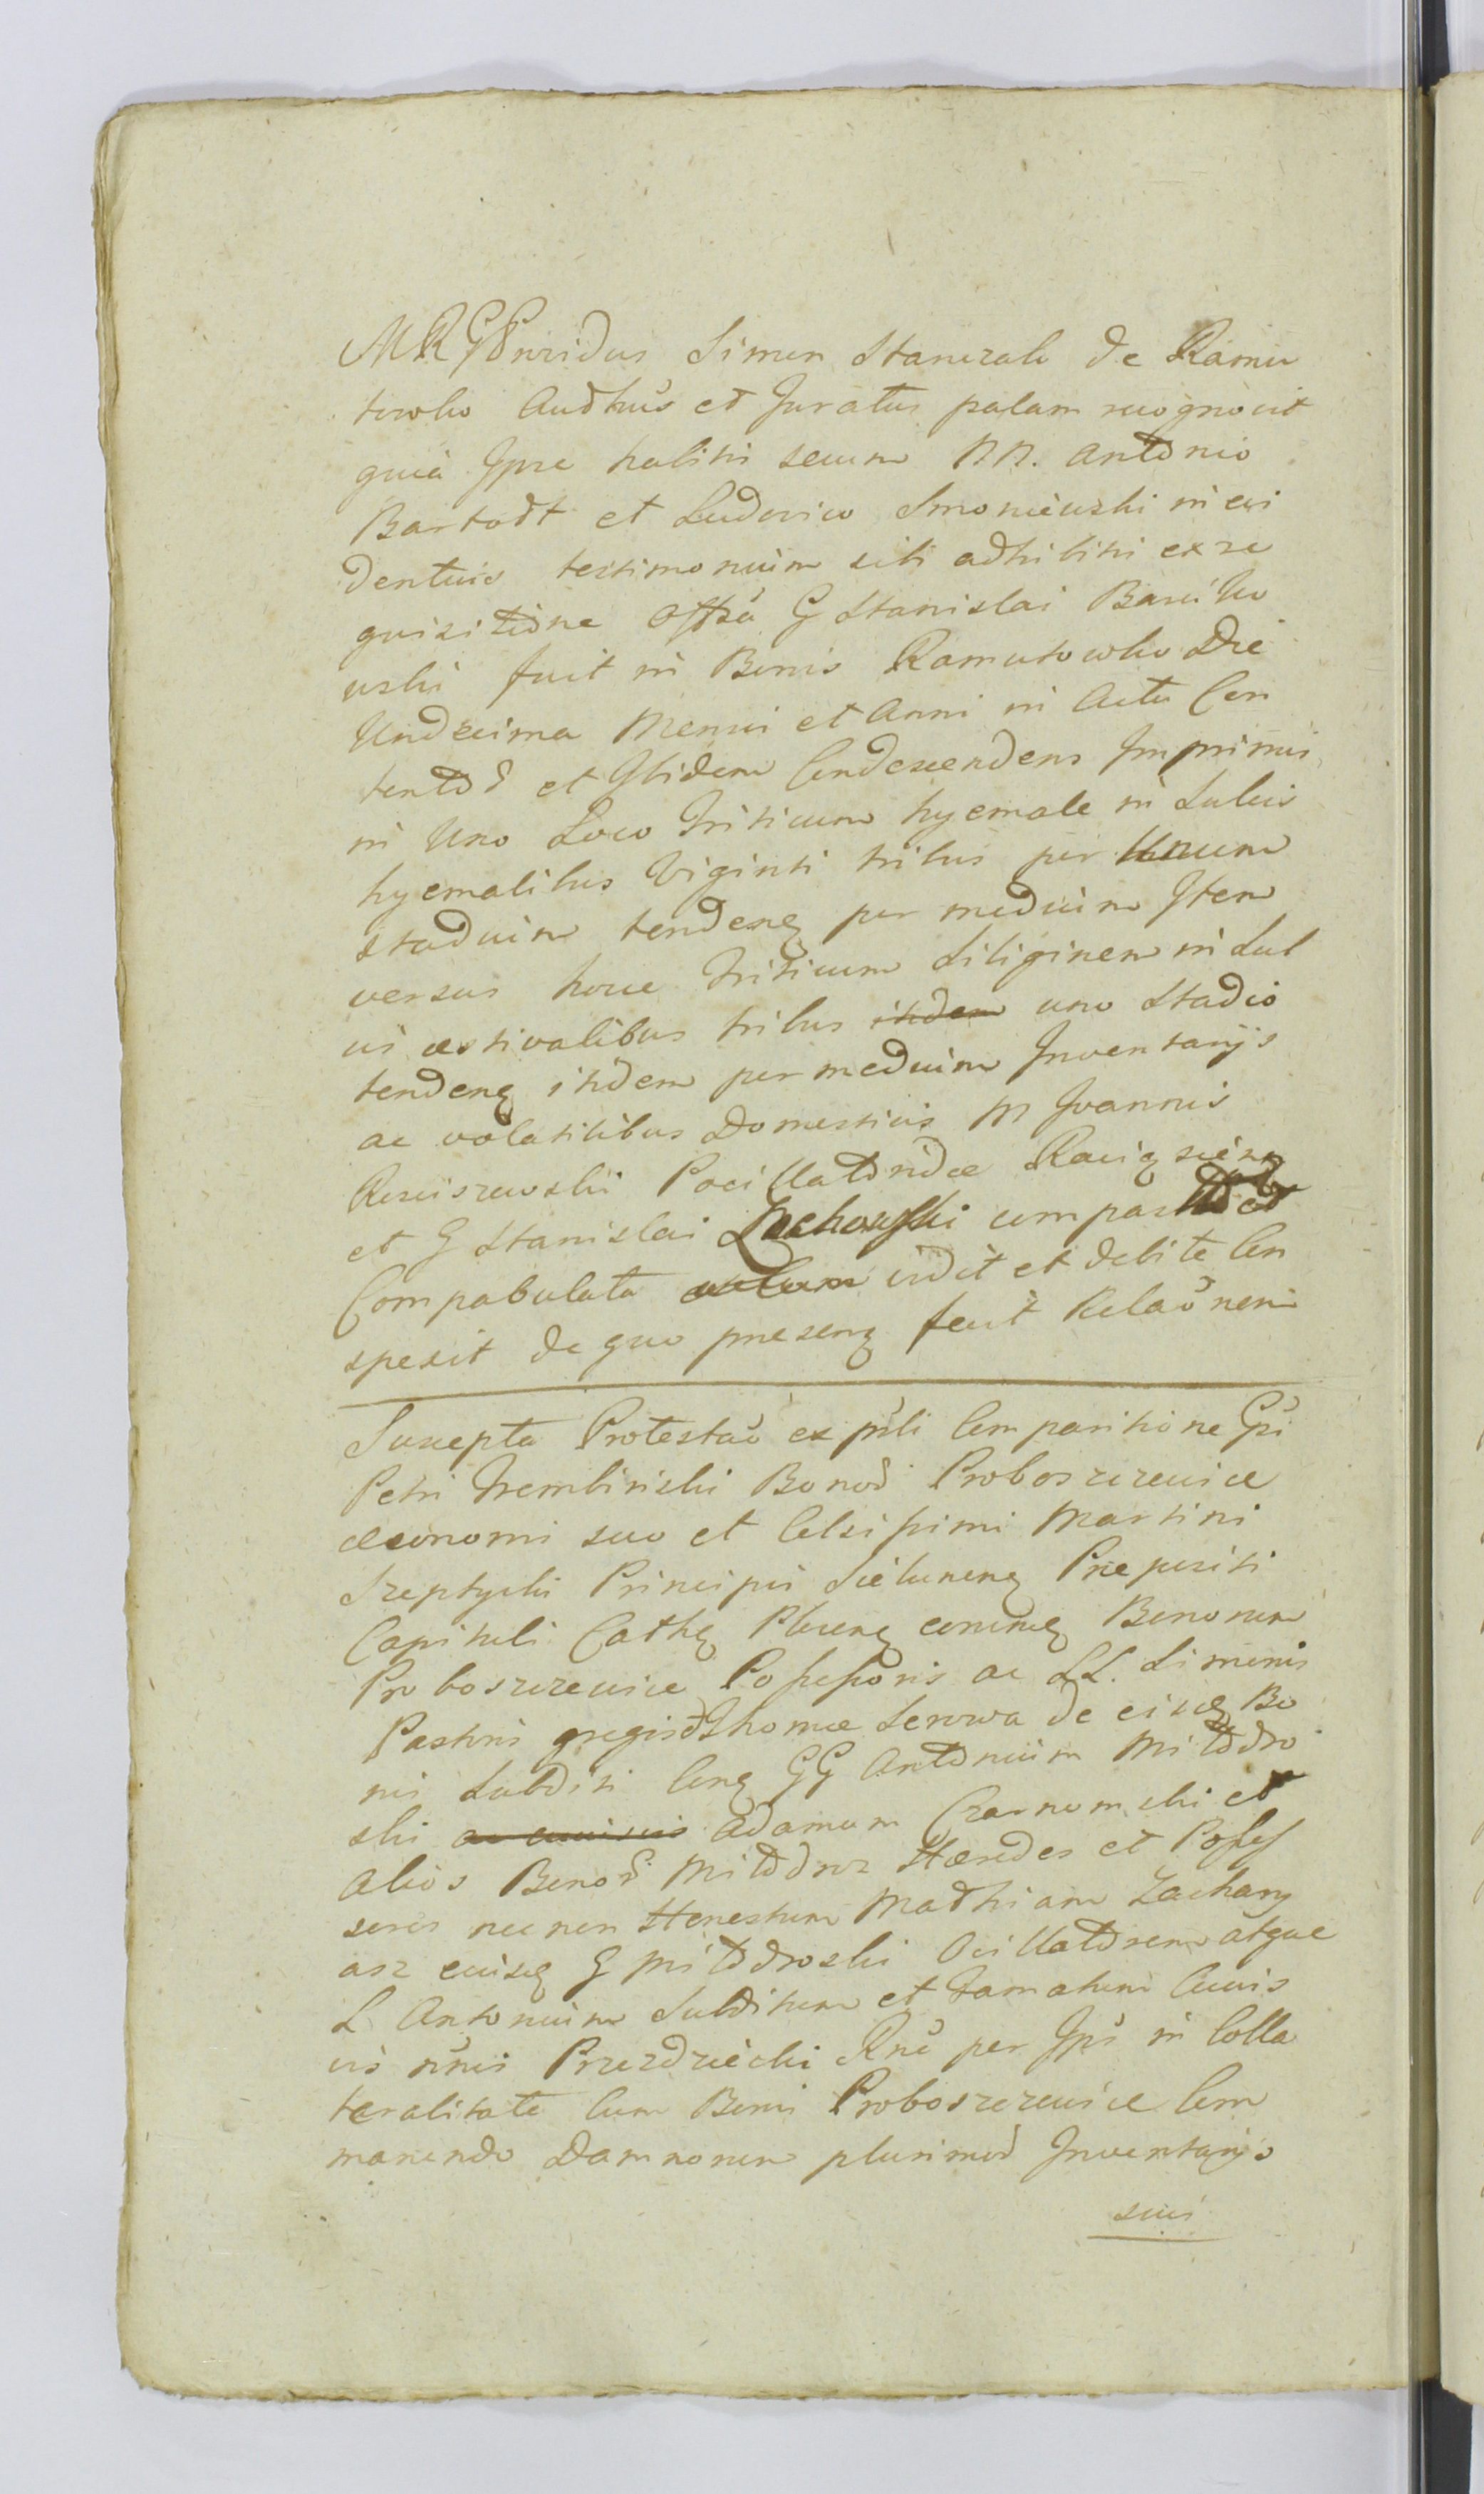 MRGProvidus Simon Stanczak de Ramu
towko Authus et Juratus palam recognovit
quia Ipse habitis secum NN. Antonio
Bartodt et Ludovico Smoniewski in evi
dentius testimonium sibi adhibitis ex re
quisitione Offsa G Stanislai Barciko
wski fuit in Bonis Ramutowko Die
Undecima Mensis et Anni in Actu Con
tentor et Ibidem Condescendens Imprimis
in Uno Loco Triticum hyemale in Sulcis
hyemalibus Viginti tribus per Unum
stadium tendenq per medium Item
versus hocce Triticum Siliginem in Sul
cis aestivalibus tribus itidem uno Stadio
tendenq itidem per medium Inventarijs
ac volatilibus Domesticis M Joannis
Rosciszewski Pocillatoridae Raciqzienq
et G Stanislai Zochowski compastio et
Compabulata vidit et debite Con
spexit de quo presenq fecit Relaonem
Suscepta Protestao ex psli Comparitione Gsi
Petri Trembinski Bonor Proboszczewice
oeconomi suo et Celsissimi Martini
Szeptycki Principis Sielunenq Praepositi
Capituli Cathq Plocenq eorumq Bonorum
Proboszczewice Possessoris ac LL. Simonis
Pastoris gregis Thomae Serwa de eisdq Bo
nis Subditi Conq GG Antonium Milodro
ski ac Adamum Czarnomski et
alios Bonor Milodroz Haeredes et Posses
sores nec non Honestum Mathiam Zachary
asz ejusq G Milodroski Ocillatorem atque
L Antonium Subditum et Famatum Civis
vis nnis Przezdziecki Rne per Ips in Colla
teralitate Cum Bonis Proboszczewice Com
manendo Damnorum plurimor Inventarijs
suis